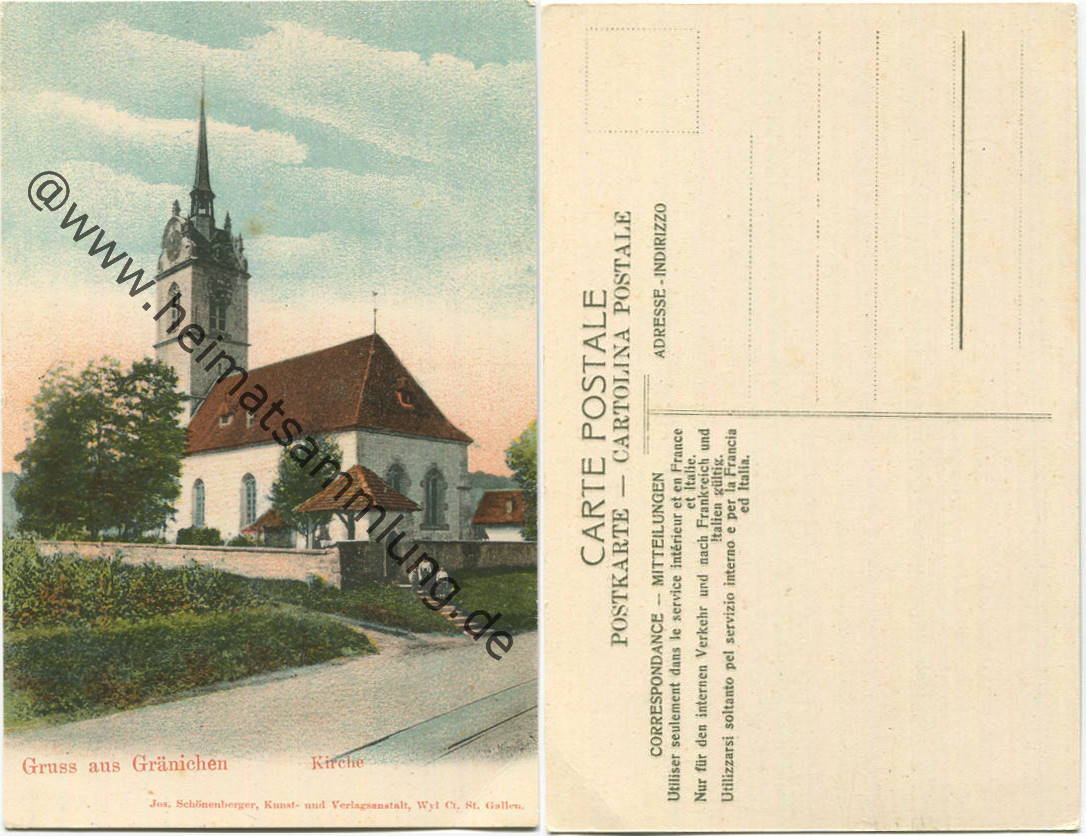 @www.heimatsammlung.de
Gruss aus Gränichen
Kirche
Jos. Schönenberger, Kunst- und Verlagsanstalt, Wyl Ct. St. Gallen.
CARTE POSTALE
POSTKARTE — CARTOLINA POSTALE
CORRESPONDANCE — MITTEILUNGEN
ADRESSE - INDIRIZZO
Utiliser seulement dans le service intérieur et en France
et Italie.
Nur für den internen Verkehr und nach Frankreich und
Italien gültig.
Utilizzarsi soltanto pel servizio interno e per la Francia
ed Italia.